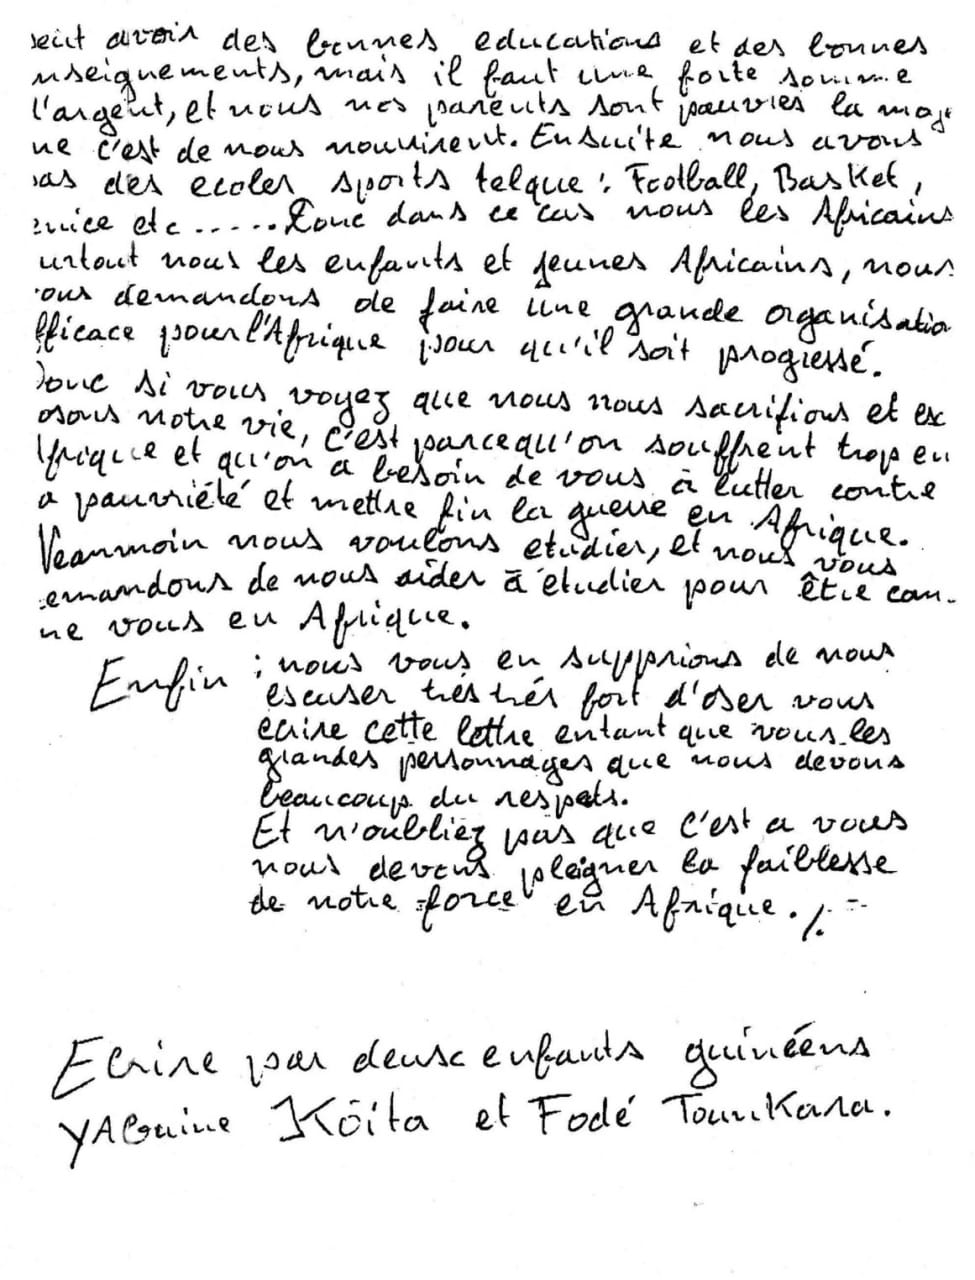 peut avoir des bonnes educations et des bonnes
nseignements, mais il faut une forte somme
l'argent, et nous nos parents sont pauvres la maj
ne c'est de nous nourrirent. Ensuite nous avons
pas des ecoles sports telque : Football, Basket,
ennice etc ...... Donc dans ce cas nous les Africains
urtout nous les enfants et jeunes Africains, nous
ous demandons de faire une grande organisatio
fficace pour l'Afrique pour qu'il soit progressé.
Donc si vous voyez que nous nous sacrifions et ex
osons notre vie, c'est parcequ'on souffrent trop en
frique et qu'on a besoin de vous à lutter contre
a pauvriété et mettre fin la guerre en Afrique.
Neanmoin nous voulons etudier, et nous vous
emandons de nous aider à etudier pour être com-
me vous en Afrique.
Enfin : nous vous en supprions de nous
excuser très très fort d'oser vous
ecrire cette lettre entant que vous les
grandes personnages que nous devons
beaucoup du respets.
Et n'oubliez pas que c'est a vous
nous devons pleigner la faiblesse
de notre force en Afrique ./. =
Ecrire par deux enfants guinéens
YAGuine Koïta et Fodé Tounkara.